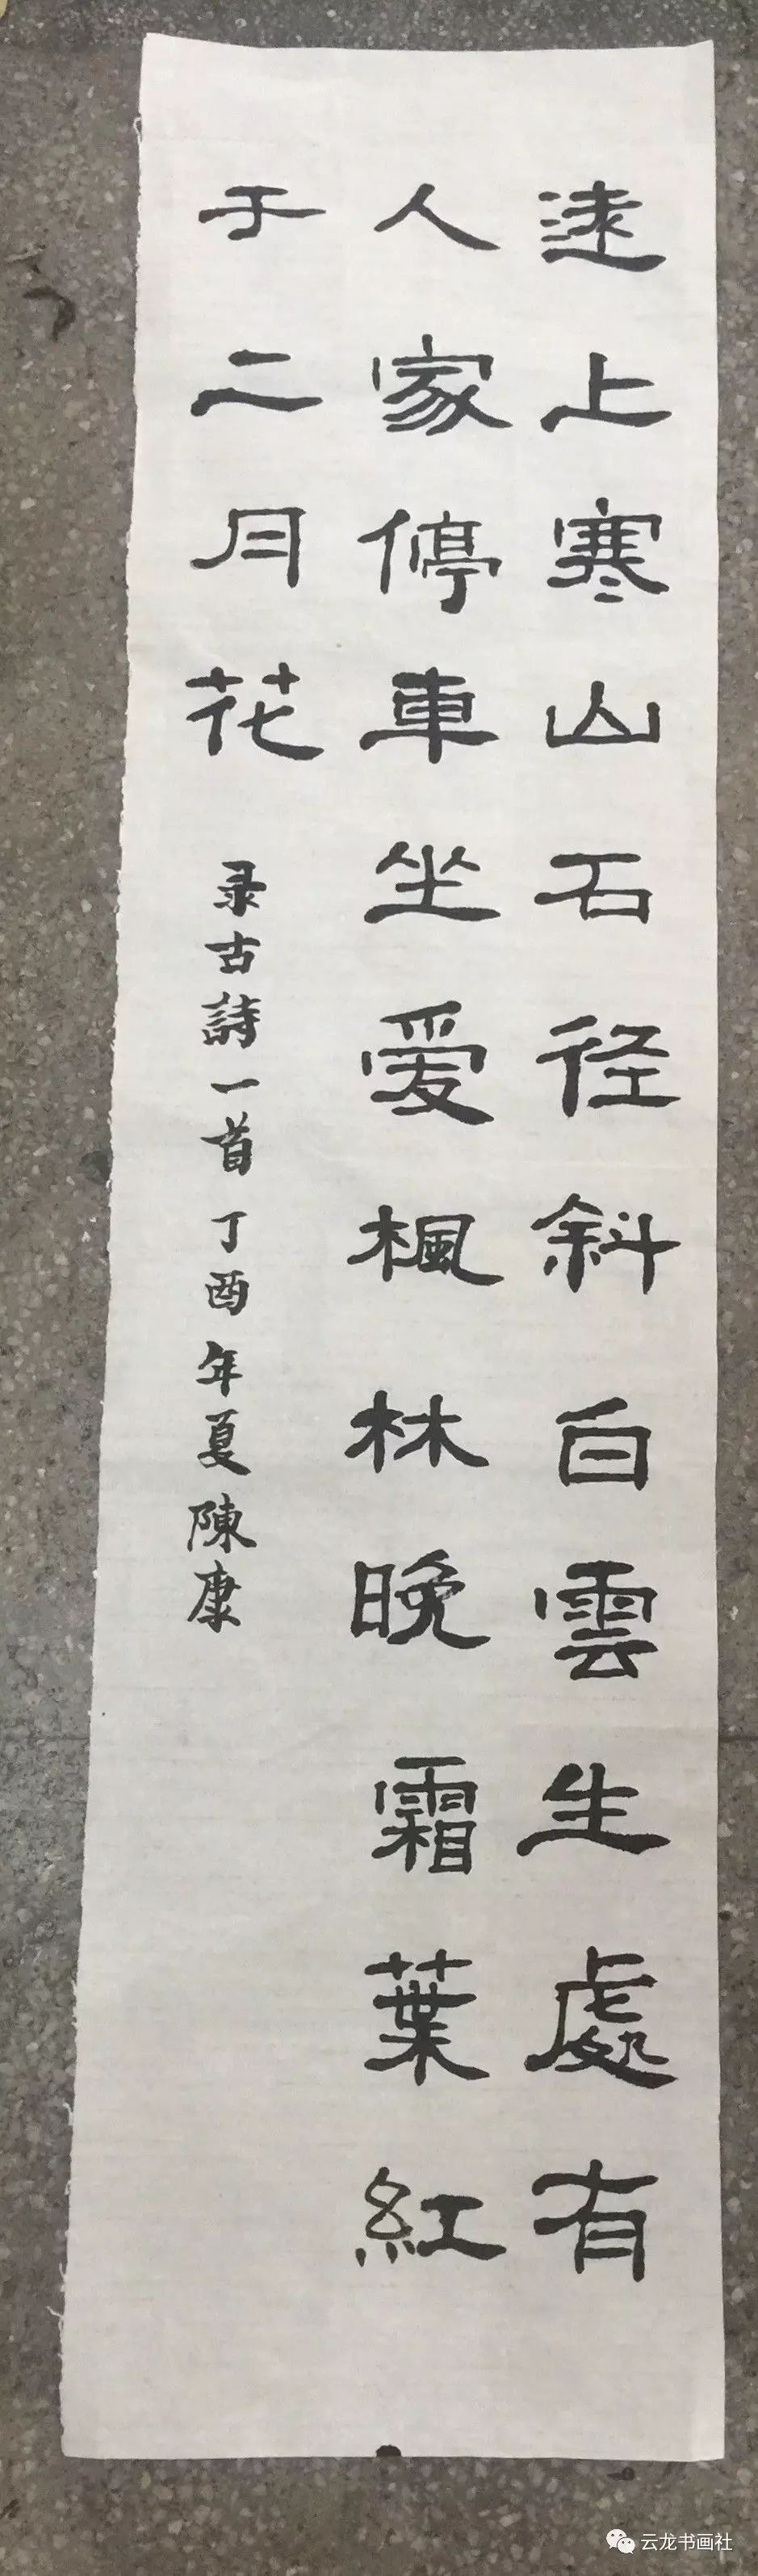 遠上寒山石径斜白雲生處有
人家停車坐愛楓林晚霜葉紅
于二月花
录古詩一首丁酉年夏陳康
云龙书画社